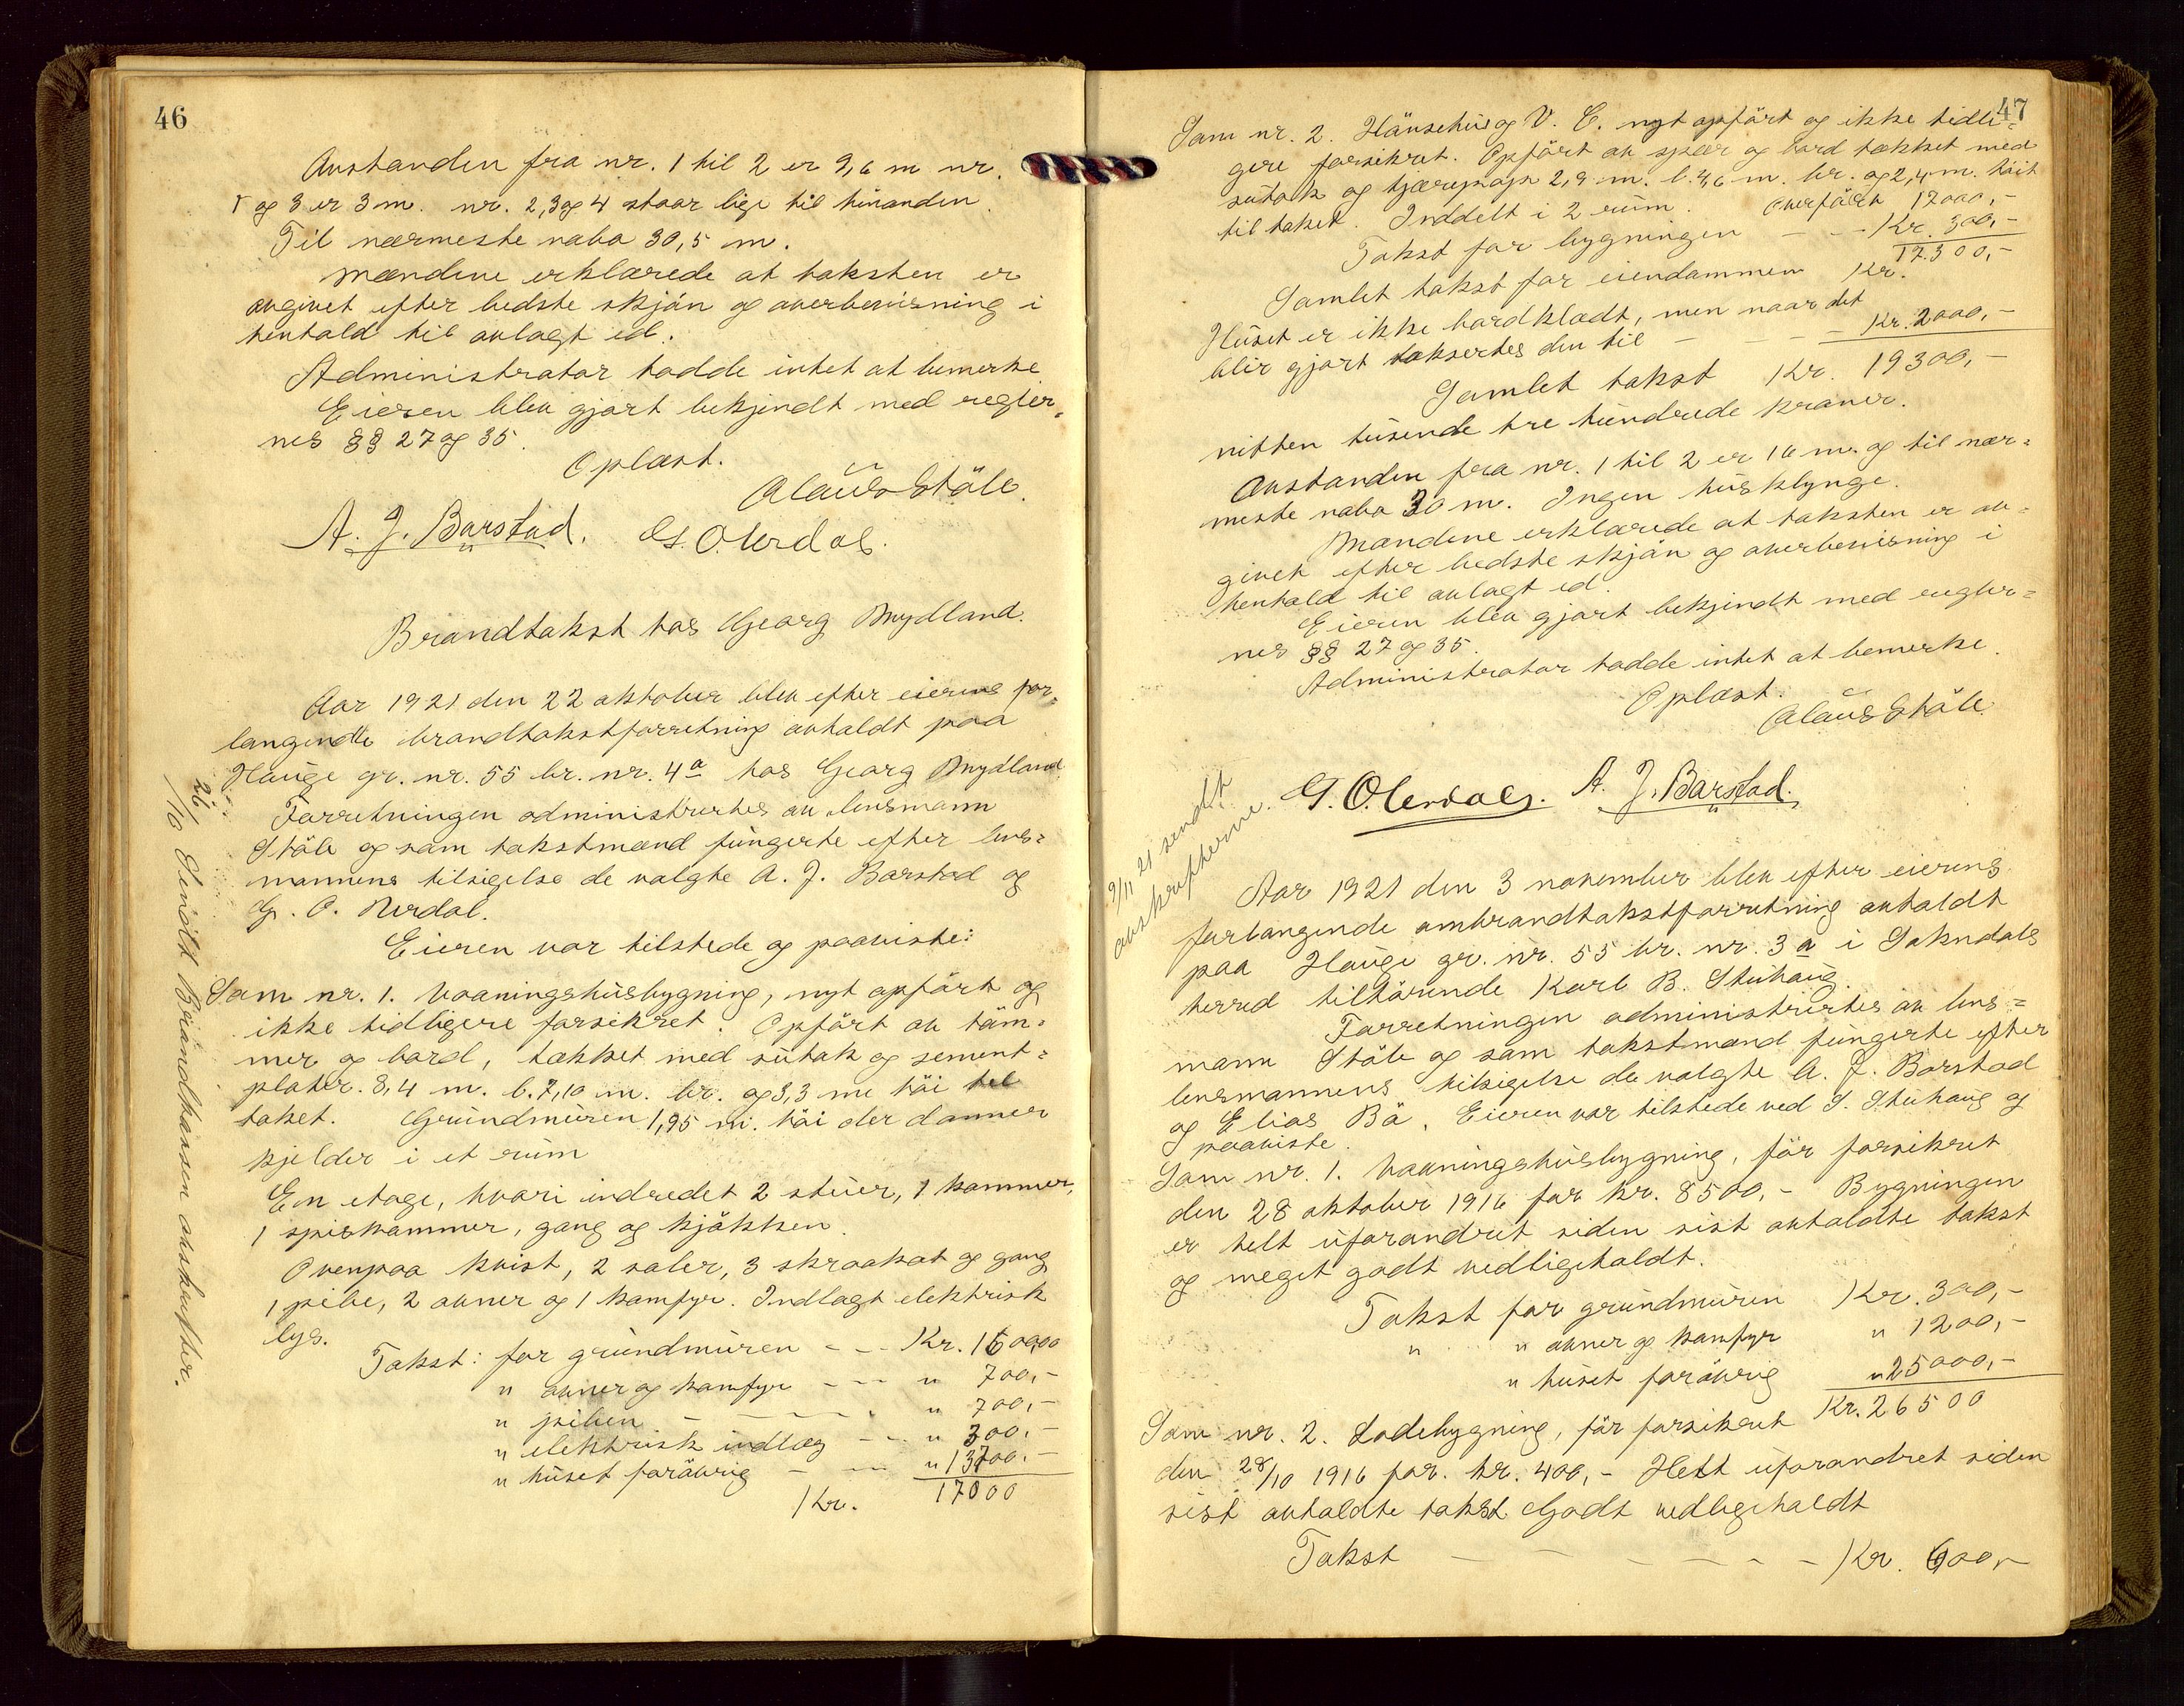 46
Avstanden fra nr. 1 til 2 er 9,6 m nr.
1 og 3 er 3 m. nr. 2, 3 og 4 staar lige til hinanden.
Til nærmeste nabo 30,5 m.
Mændene erklærede at taksten er
avgivet efter bedste skjön og overbevisning i
henhold til avlagt ed.
Administrator hadde intet at bemerke
Eieren blev gjort bekjendt med regler-
nes §§ 27 og 35.
Oplæst.
Olaus Ståle.
A. J. Barstad. G. O. Urdal.
Brandtakst hos Georg Mydland.
Aar 1921 den 22 oktober blev efter eierens for-
langende brandtakstforretning avholdt paa
Hauge gr. nr. 55 br. nr. 4a hos Georg Mydland
Forretningen administrertes av lensmann
Ståle og som takstmænd fungerte efter lens=
mannens tilsigelse de valgte A. J. Barstad og
G. O. Urdal.
Eieren var tilstede og paaviste:
Som nr. 1. Vaaningshusbygning, nyt opført og
ikke tidligere forsikret. Opført av töm=
mer og bord, tækket med sutak og sement=
plater. 8,4 m. l. 7,10 m. br. og 3,3 m höi til
taket. Grundmuren 1,95 m. höi der danner
kjelder i et rum
En etage, hvori indredet 2 stuer, 1 kammer,
1 spiskammer, gang og kjökken.
Ovenpaa kvist, 2 saler, 3 skraakot og gang
1 pibe, 2 ovner og 1 komfyr. Indlagt elektrisk
lys.
Takst: for grundmuren - - - Kr. 1600,00
" ovner og komfyr - - - " 700,-
" piben - - - - - " 700,-
" elektrisk indlæg - - - " 300.-
" huset forövrig - - - " 13700.-
Kr. 17000
26/10 Sendt Brandkassen avskrifter.
47
Som nr. 2. Hönsehus og V. C. nyt opfört og ikke tidli=
gere forsikret. Opfört av spær og bord tækket med
sutak og tjærepap 2,9 m. l. 4,6 m. br. og 2,4 m. höit
til taket. Inddelt i 2 rum. Overfört 17000,-
Takst for bygningen - - - Kr. 300,-
Samlet takst for eiendommen Kr. 17.300,-
Huset er ikke bordklædt, men naar det
blir gjort taksertes den til - - - Kr. 2000,-
Samlet takst Kr. 19300,-
nitten tusende tre hundrede kroner.
Avstanden fra nr. 1 til 2 er 16 m. og til nær=
meste nabo 30 m. Ingen husklynge.
Mændene erklærede at taksten er av=
givet efter bedste skjön og overbevisning i
henhold til avlagt ed.
Eieren blev gjort bekjendt med regler=
nes §§ 27 og 35.
Administrator hadde intet at bemerke.
Oplæst.
Olaus Ståle.
G. O. Urdal. A. J. Barstad.
9/11 21 sendt
avskrifterne.
Aar 1921 den 3 november blev efter eierens
forlangende ombrandtakstforretning avholdt
paa Hauge gr. nr. 55 br. nr. 3a i Sokndals
herred tilhörende Karl B. Stuhaug.
Forretningen administrertes av lens=
mann Ståle og som takstmænd fungerte efter
lensmannens tilsigelse de valgte A. J. Barstad
og Elias Bö. Eieren var tilstede ved S. Stuhaug og
paaviste.
Som nr. 1. Vaaningshusbygning, för forsikret
den 28 oktober 1916 for kr. 8500,- Bygningen
er helt uforandret siden sist avholdte takst
og meget godt vedligeholdt.
Takst for grundmuren Kr. 300,-
" " ovner og komfyr " 1200,-
" huset foröwrig " 25000,-
Kr. 26500
Som nr. 2. Lodebygning, för forsikret
den 28/10 1916 for. kr. 400,- Helt uforandret siden
sist avholdte takst Godt vedligeholdt
Takst - - - - - - Kr. 600,-